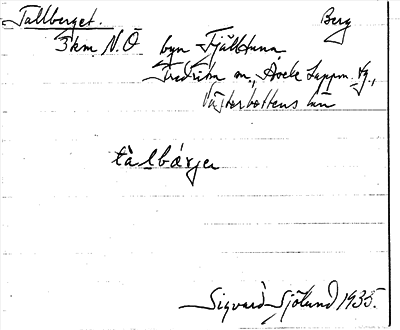 Tallberget. Berg
3 km N.Ö byn Fjälltuna
Fredrika sn., Åsele Lappm. fg.,
Västerbottens län
tàlbærjer
Sigvard Sjölund 1935.